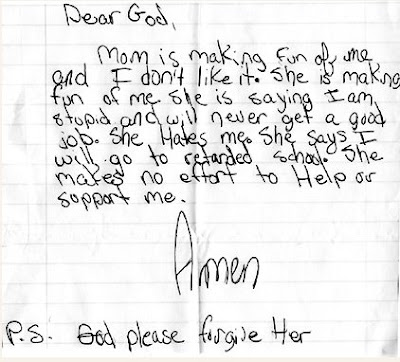 Dear God,
Mom is making fun of me
and I don't like it. She is making
fun of me she is saying I am
stupid and will never get a good
job. She Hates me. She says I
will go to retarded school. She
makes no effort to Help or
support me.
Amen
P.S. God please forgive Her